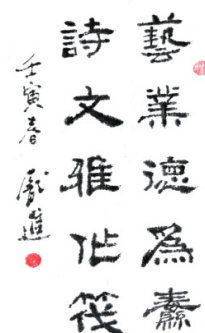 藝業德為纛
詩文雅作筏
壬寅春